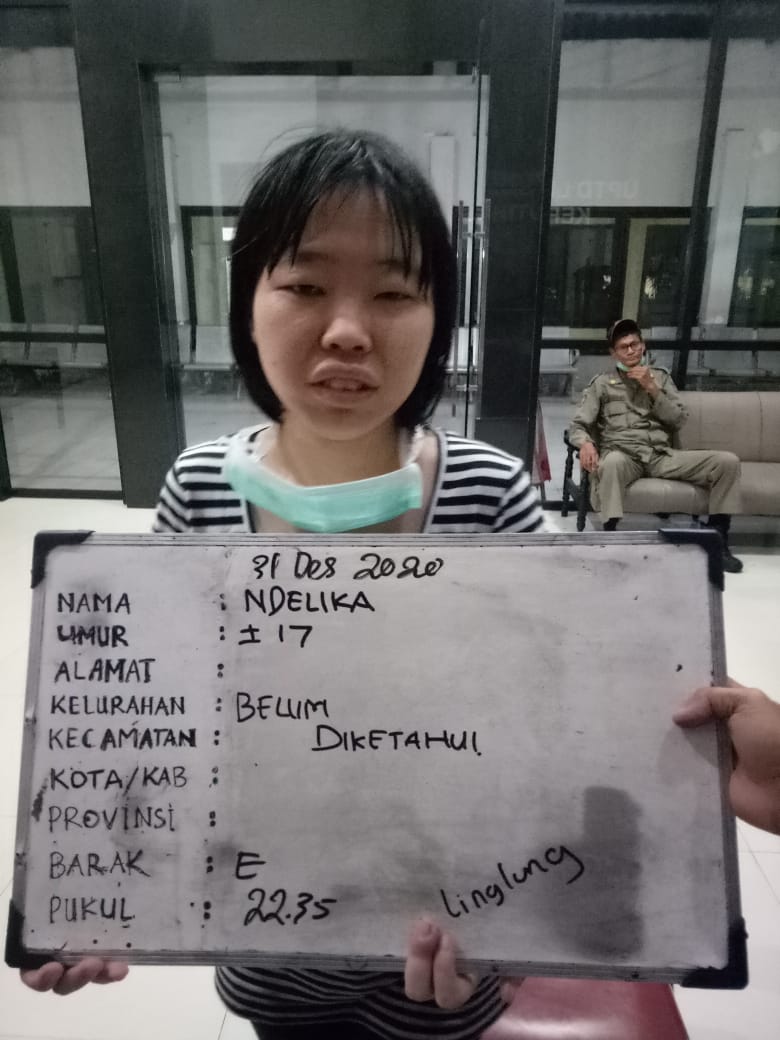 31 Des 2020
NAMA : NDELIKA
UMUR : ± 17
ALAMAT :
KELURAHAN : BELUM
KECAMATAN : DIKETAHUI
KOTA/KAB :
PROVINSI :
BARAK : E
PUKUL : 22.35
linglung
UPTD